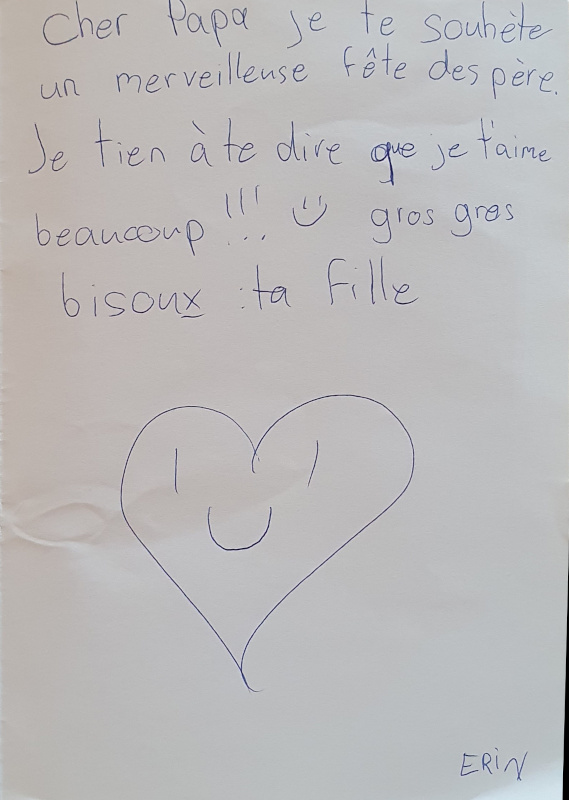 Cher Papa je te souhète
un merveilleuse fête des père.
Je tien à te dire que je t'aime
beaucoup !!! gros gros
bisoux :ta fille
ERiN